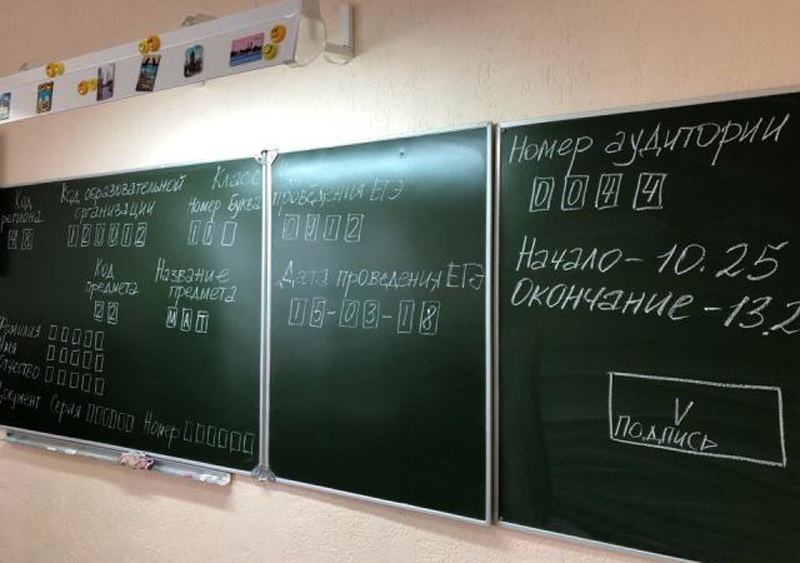 Код региона
48
Код образовательной организации
120012
Класс
Номер Буква
11
Код предмета
22
Название предмета
МАТ
Фамилия
Имя
Отчество
Документ Серия Номер
проведения ЕГЭ
0012
Дата проведения ЕГЭ
15-03-18
Номер аудитории
0044
Начало - 10.25
Окончание - 13.2
V
Подпись